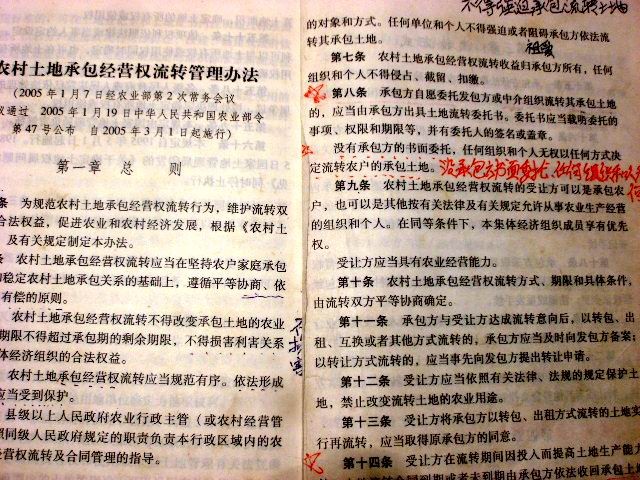 农村土地承包经营权流转管理办法
（2005年1月7日经农业部第2次常务会议
议通过 2005年1月19日中华人民共和国农业部令
第47号公布 自2005年3月1日起施行）
第一章 总 则
条 为规范农村土地承包经营权流转行为，维护流转双
合法权益，促进农业和农村经济发展，根据《农村土
及有关规定制定本办法。
条 农村土地承包经营权流转应当在坚持农户家庭承包
和稳定农村土地承包关系的基础上，遵循平等协商、依
有偿的原则。
农村土地承包经营权流转不得改变承包土地的农业
期限不得超过承包期的剩余期限，不得损害利害关系
体经济组织的合法权益。
农村土地承包经营权流转应当规范有序。依法形成
应当受到保护。
县级以上人民政府农业行政主管（或农村经营管
照同级人民政府规定的职责负责本行政区域内的农
营权流转及合同管理的指导。
不损害
不得强迫承包流转土地
的对象和方式。任何单位和个人不得强迫或者阻碍承包方依法流
转其承包土地。
第七条 农村土地承包经营权流转收益归承包方所有，任何
组织和个人不得侵占、截留、扣缴。
第八条 承包方自愿委托发包方或中介组织流转其承包土地
的，应当由承包方出具土地流转委托书。委托书应当载明委托的
事项、权限和期限等，并有委托人的签名或盖章。
没有承包方的书面委托，任何组织和个人无权以任何方式决
定流转农户的承包土地。
没承包方书面委托，任何组织
第九条 农村土地承包经营权流转的受让方可以是承包农
户，也可以是其他按有关法律及有关规定允许从事农业生产经营
的组织和个人。在同等条件下，本集体经济组织成员享有优先
权。
受让方应当具有农业经营能力。
第十条 农村土地承包经营权流转方式、期限和具体条件，
由流转双方平等协商确定。
第十一条 承包方与受让方达成流转意向后，以转包、出
租、互换或者其他方式流转的，承包方应当及时向发包方备案；
以转让方式流转的，应当事先向发包方提出转让申请。
第十二条 受让方应当依照有关法律、法规的规定保护土
地，禁止改变流转土地的农业用途。
第十三条 受让方将承包方以转包、出租方式流转的土地实
行再流转，应当取得原承包方的同意。
第十四条 受让方在流转期间因投入而提高土地生产能力